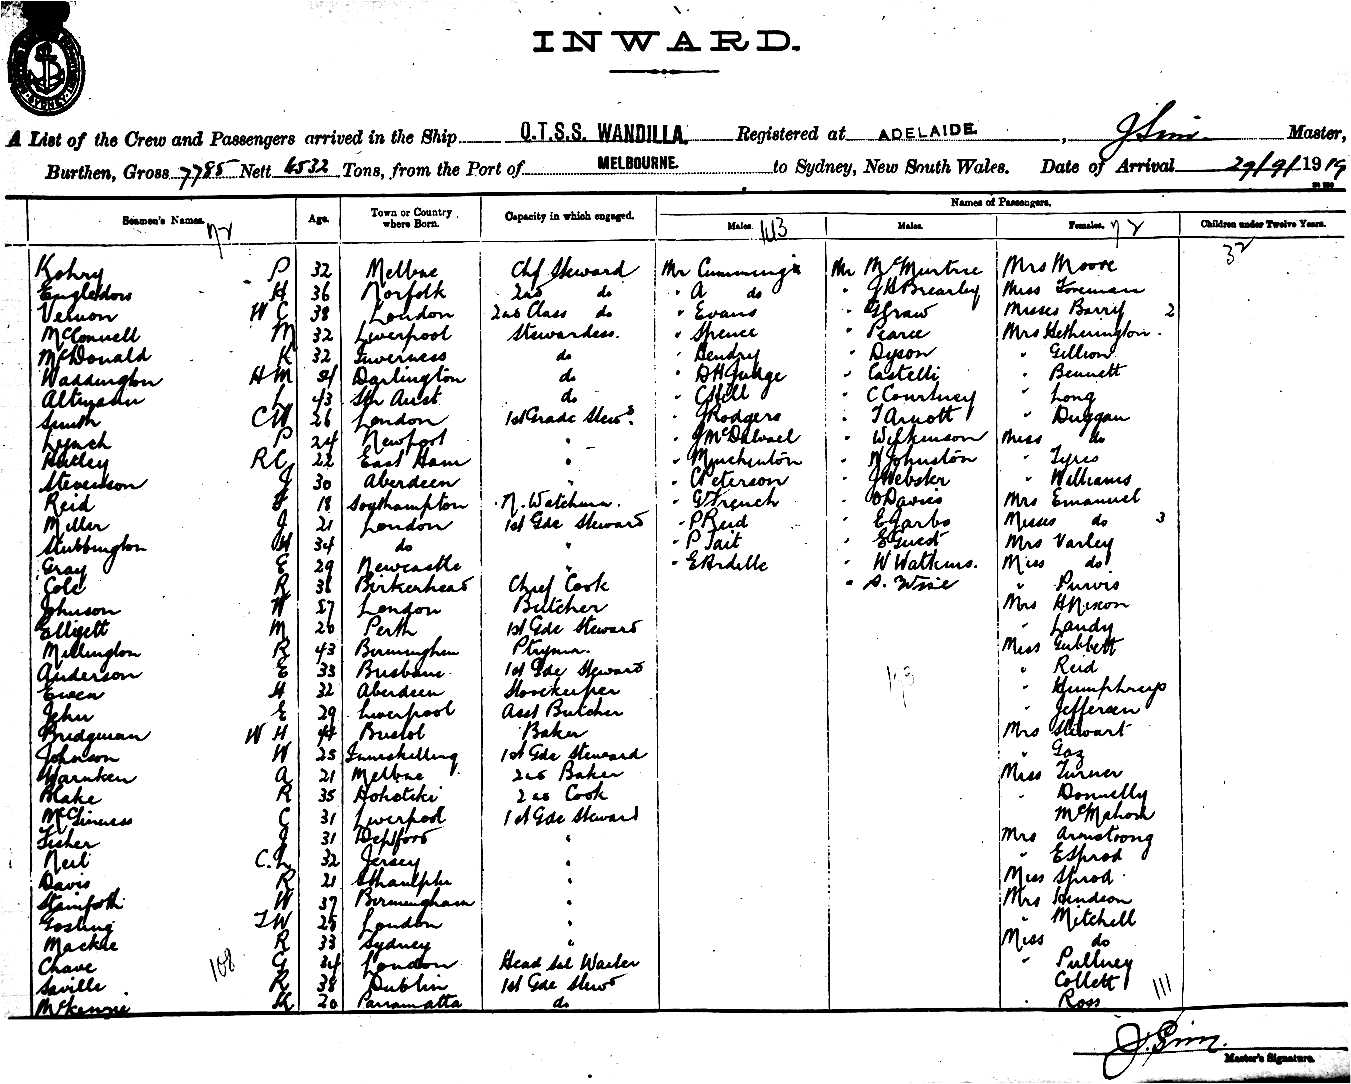 INWARD.
A List of the Crew and Passengers arrived in the Ship Q.T.S.S. WANDILLA Registered at ADELAIDE. , J Sim Master,
Burthen, Gross 7785 Nett Tons, from the Port of MELBOURNE. to Sydney, New South Wales. Date of Arrival 29/9/1919
Names of Passengers.
Seamen's Names. Age. Town or Country where Born. Capacity in which engaged. Males. Males. Females. Children under Twelve Years.
72 113 72 32
P 32 Melbne Chf Steward Mr Cumming Mr McMurtrie Mrs Moore
H 36 Norfolk 2nd do " A do " Brearley Miss Foreman
Vernon W C 38 London 2nd Class do " Evans " Misses Barry 2
McConnell M 32 Liverpool Stewardess. " Spence " Pearce Mrs Hetherington
McDonald K 32 Inverness do " Hendry " Dyson " Gillion
Waddington H M Darlington do " D H Judge " Castelli " Bennett
Altmann L 43 Sth Aust do " C Hill " C Courtney " Long
Smith C W 26 London 1st Grade Stewd " J Rodgers " T Arnott " Duggan
Lynch P 24 Newpool " " " Wilkinson Miss do
R C 22 East Ham " " Minchinton " N Johnston " Tyres
Stevenson J 30 Aberdeen " " C Peterson " J Webster " Williams
Reid 18 Southampton N. Watchmn. " G French " O Davies Mrs Emanuel
Miller J 21 London 1st Gde Steward " P Reid " E Garbo Misses do 3
Stubbington H 34 do " " P Tait " E Guest Mrs Varley
Gray E 29 Newcastle " " E Ardille " W Watkins. Miss do
Cole R Birkenhead Chief Cook " A. Wise " Purvis
Johnson W 57 London Butcher Mrs H Nixon
Elligett M 20 Perth 1st Gde Steward " Landy
Millington R 43 Birmingham Ptrymn. Miss Gubbett
Anderson E 33 Brisbane 1st Gde Steward " Reid
Ewen H 32 Aberdeen Storekeeper " Humphreys
John E 29 Liverpool Asst Butcher " Jefferson
Bridgman W H Bristol Baker Mrs Stewart
Johnson W 25 Inniskilling 1st Gde Steward " Gaz
Warnken A 21 Melbne 2nd Baker Miss Turner
Blake R 35 Hokitiki 2nd Cook " Donnelly
McGinness C 31 Liverpool 1st Gde Steward McMahon
Fisher J 31 Deptford " Mrs Armstrong
Neil C. L 32 Jersey " " E Sprod
Davis R 21 " Miss Sprod
W 37 Birmingham " Mrs Hindson
Gosling T W 28 London " " Mitchell
Mackie R 33 Sydney " Miss do
Chave G 34 London Head Sal Waiter " Pultney
Saville R 38 Dublin 1st Gde Stewd Collett
McKenzie K 20 Parramatta do " Ross
108 113 111
J. Sim.
Master's Signature.